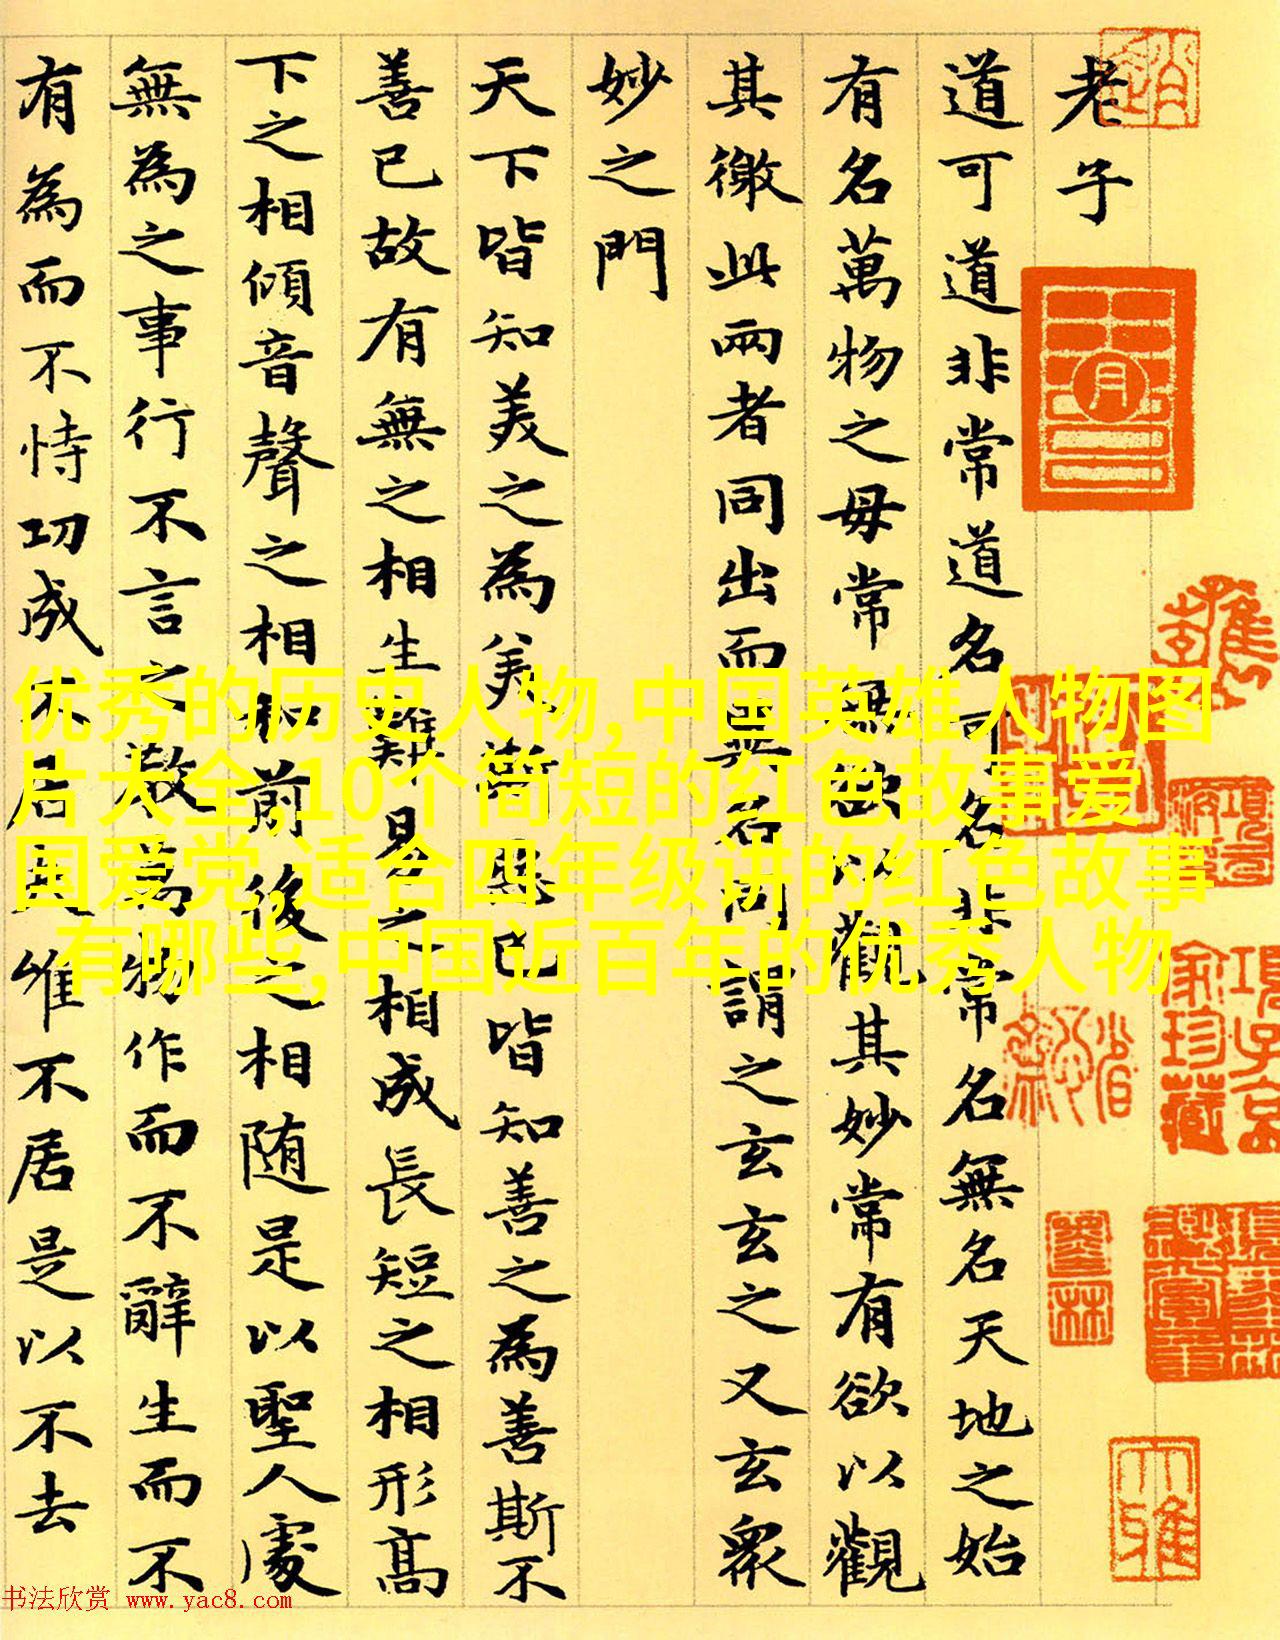 老子
道可道非常道名可名非常名無名天地之始
有名萬物之毋常無欲以觀其妙常有欲以觀
其徼此兩者同出而異名同謂之玄玄之又玄衆
妙之門
天下皆知美之為美斯惡已皆知善之為善斯不
善已故有無之相生難易之相成長短之相形高
下之相傾音聲之相和前後之相随是以聖人處
無為之事行不言之教萬物作而不辭生而不
有為而不恃功成不居夫惟不居是以不去
优秀的历史人物,中国英雄人物图
片大全,10个简短的红色故事爱
国爱党,适合四年级讲的红色故事
有哪些,中国近百年的优秀人物
項子京
家珍藏
书法欣赏 www.yac8.com